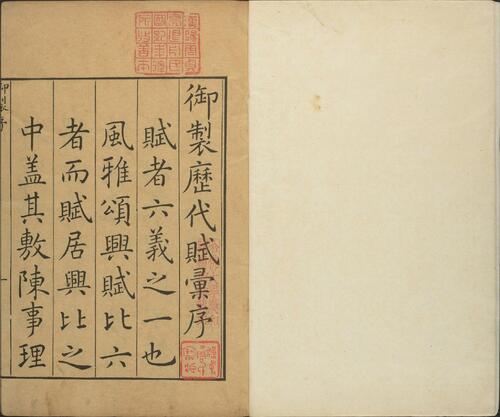 御製歷代賦彙序
賦者六義之一也
風雅頌興賦比六
者而賦居興比之
中盖其敷陳事理
御製序